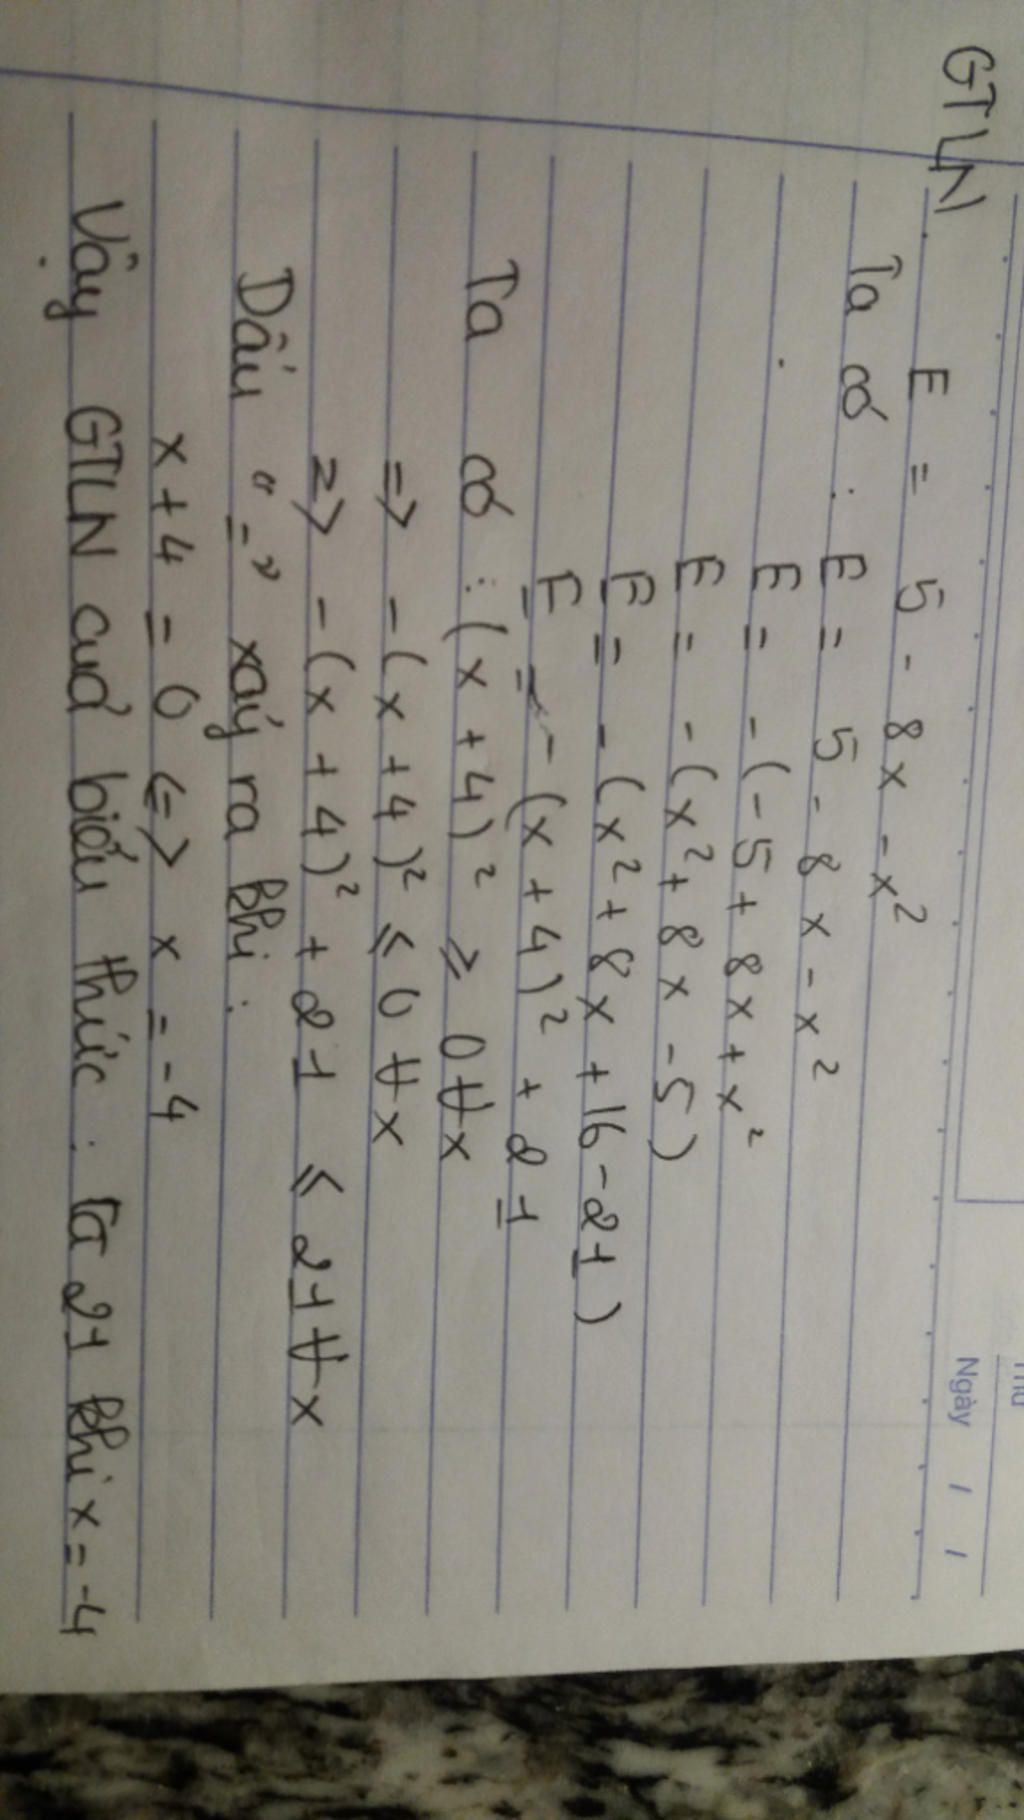 Ngày / /
GTLN
E = 5 - 8x - x²
Ta có : E = 5 - 8x - x²
E = -(-5 + 8x + x²
E = -(x² + 8x - 5)
E = -(x² + 8x + 16 - 21)
E = -(x + 4)² + 21
Ta có : (x + 4)² ≥ 0 ∀x
=> -(x + 4)² ≤ 0 ∀x
=> -(x + 4)² + 21 ≤ 21 ∀x
Dấu "=" xảy ra khi :
x + 4 = 0 <=> x = -4
Vậy GTLN cuả biểu thức : là 21 khi x = -4